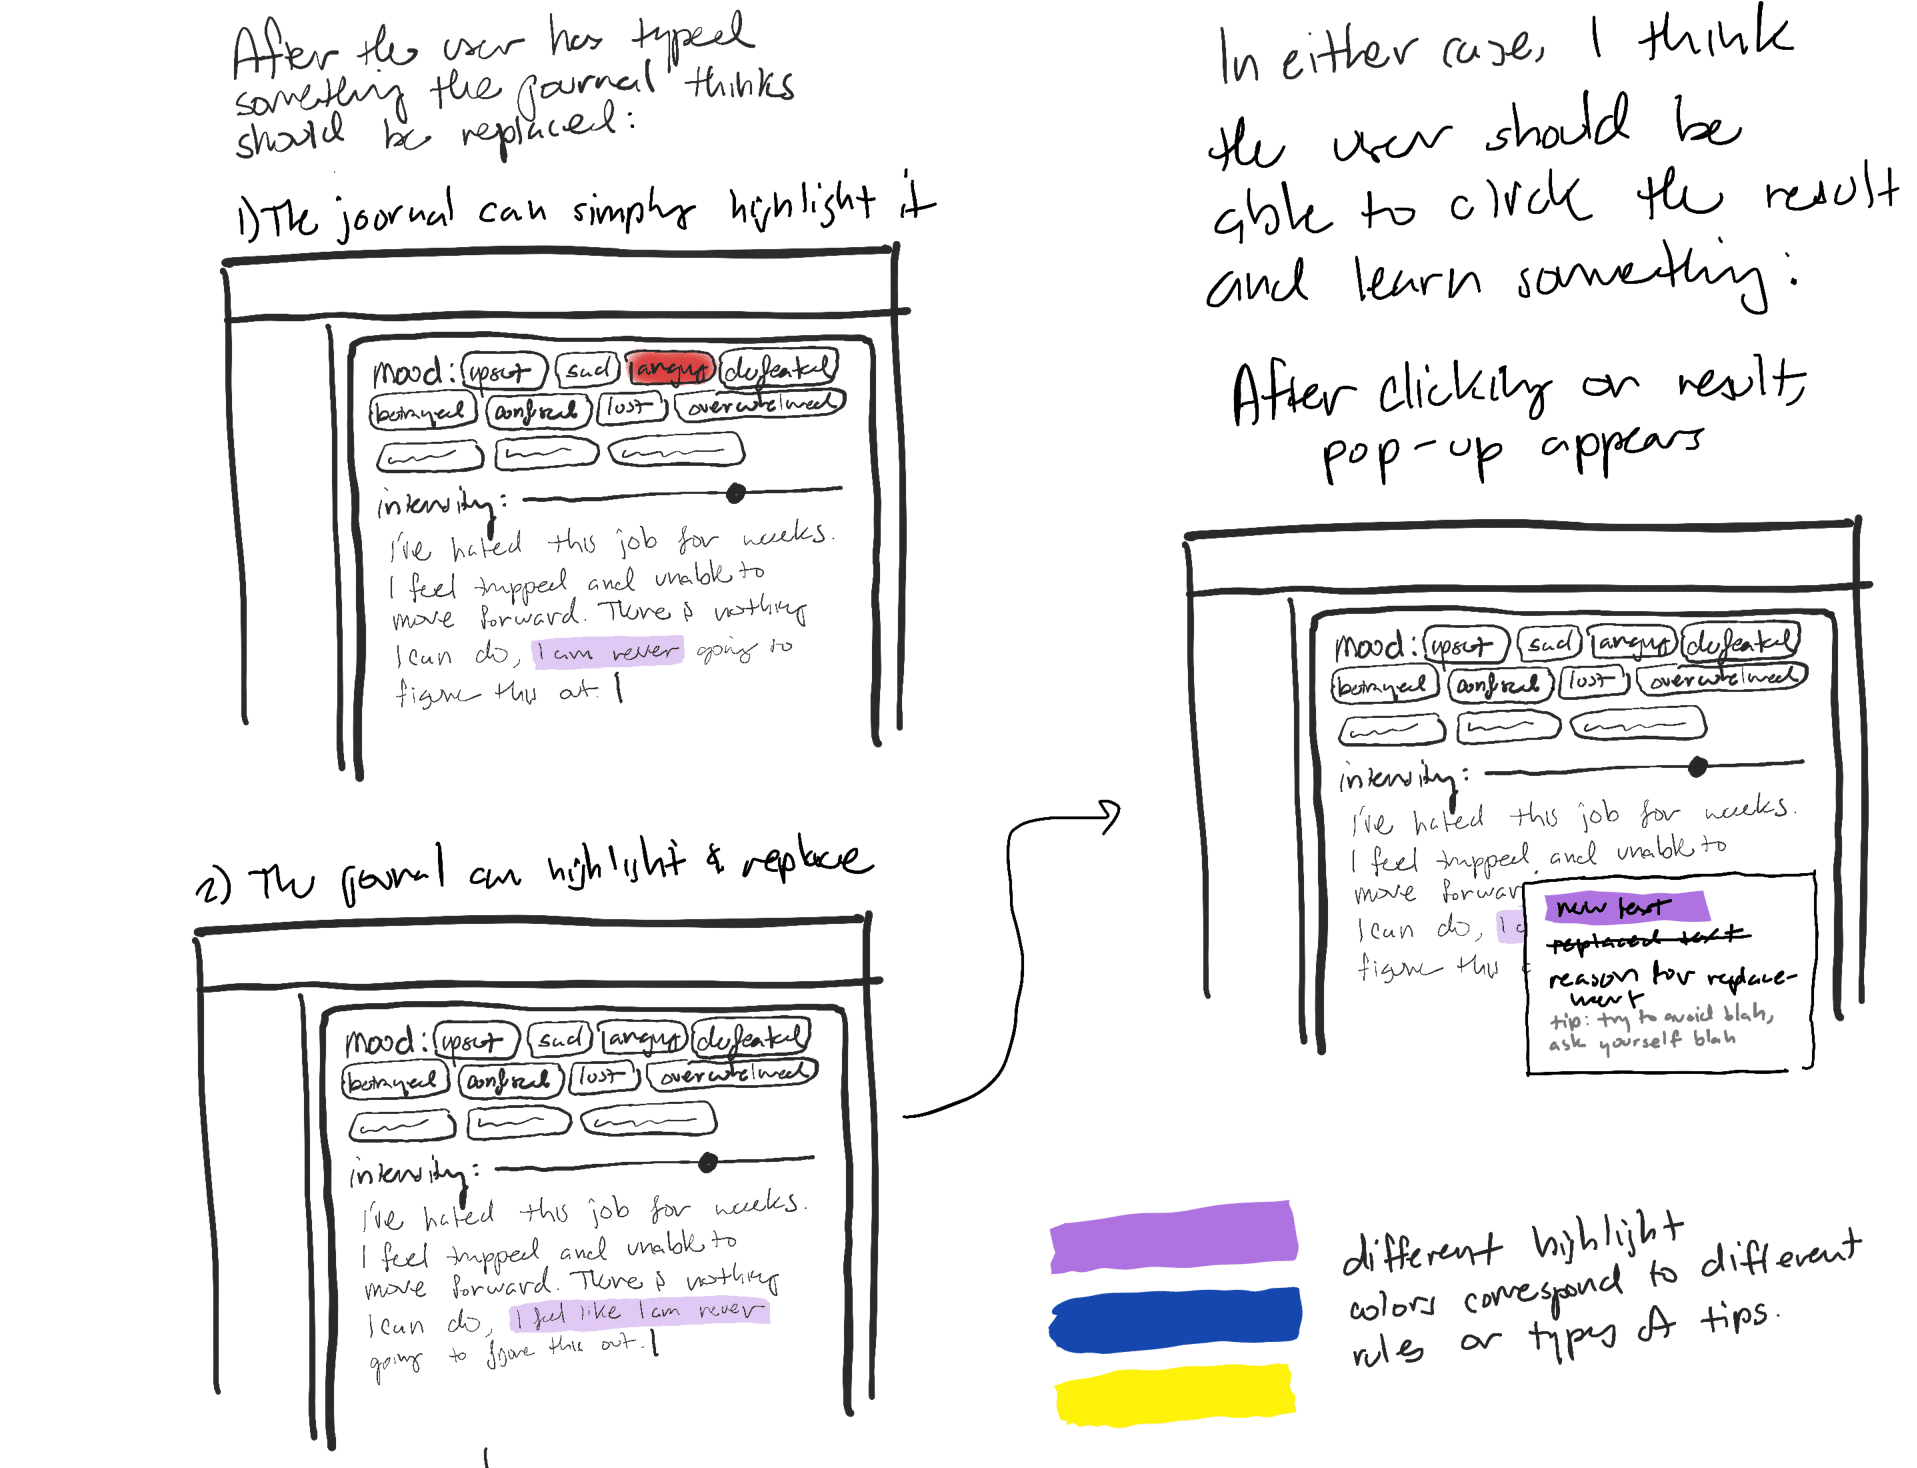 After the user has typed
something the journal thinks
should be replaced:
1) The journal can simply highlight it
mood: upset sad angry defeated
betrayed confused lost overwhelmed
intensity:
I've hated this job for weeks.
I feel trapped and unable to
move forward. There is nothing
I can do, I am never going to
figure this out.
2) The journal can highlight & replace
mood: upset sad angry defeated
betrayed confused lost overwhelmed
intensity:
I've hated this job for weeks.
I feel trapped and unable to
move forward. There is nothing
I can do, I feel like I am never
going to figure this out.
In either case, I think
the user should be
able to click the result
and learn something:
After clicking on result,
pop-up appears
mood: upset sad angry defeated
betrayed confused lost overwhelmed
intensity:
I've hated this job for weeks.
I feel trapped and unable to
move forwar
I can do, I a
figure this
new text
replaced text
reason for replace-
ment
tip: try to avoid blah,
ask yourself blah
different highlight
colors correspond to different
rules or types of tips.